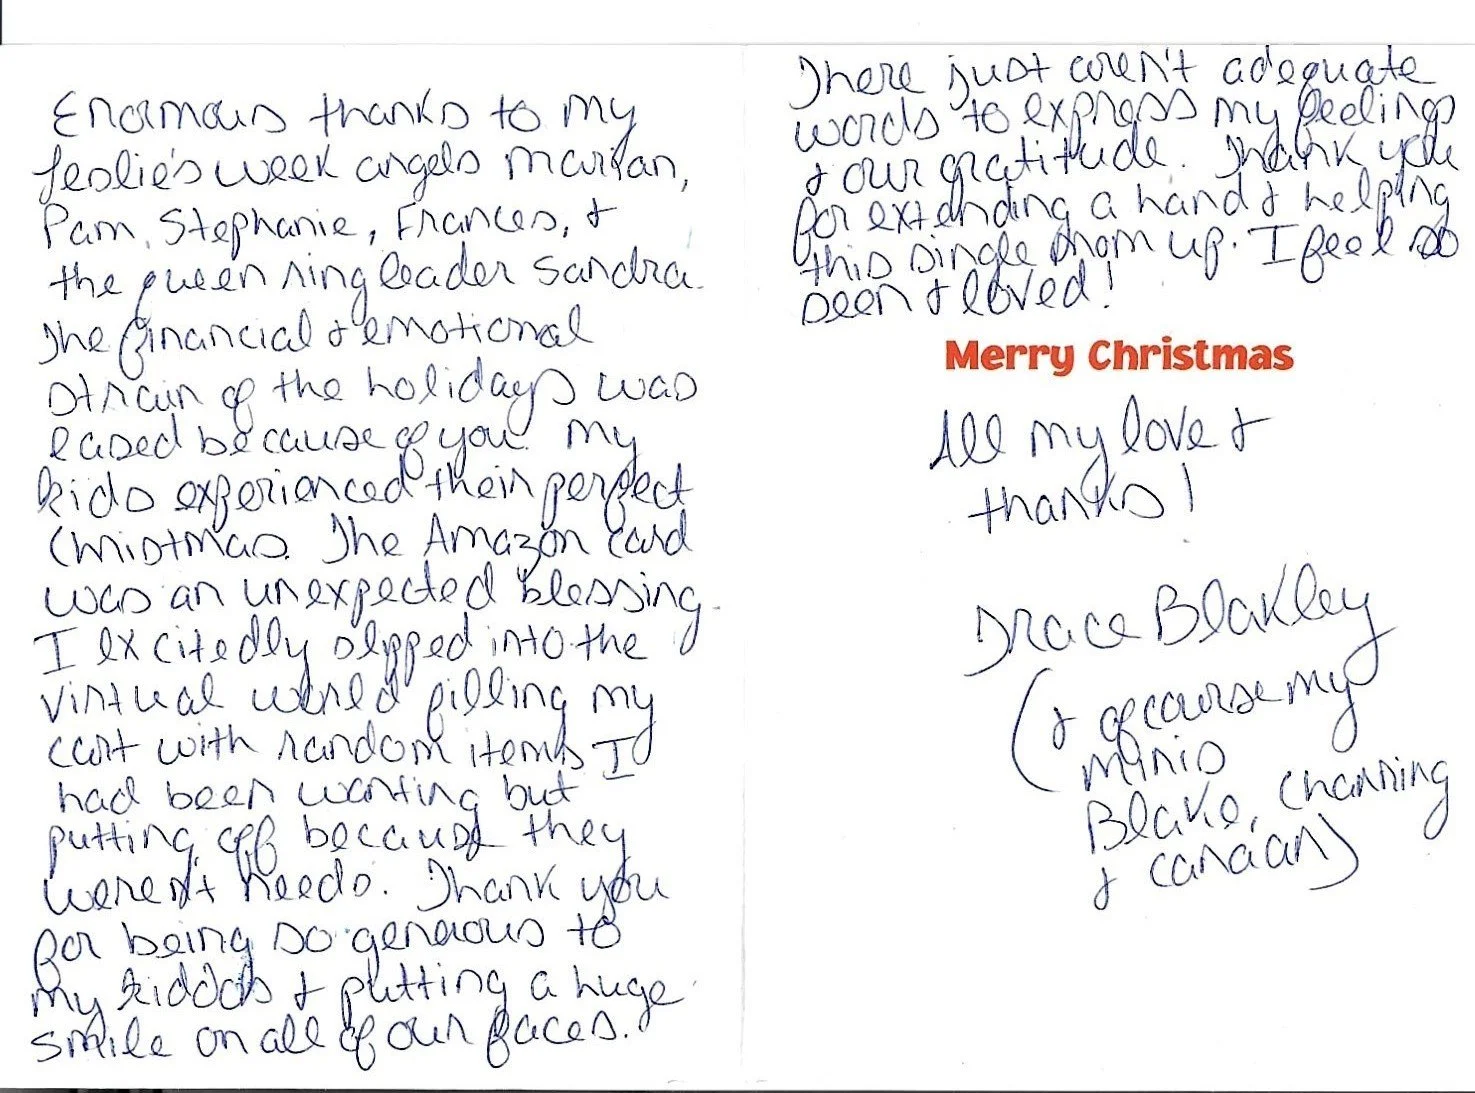 Enormous thanks to my
Leslie's week angels Marian,
Pam, Stephanie, Frances, &
the queen ring leader Sandra.
The financial & emotional
strain of the holidays was
eased because of you. My
kids experienced their perfect
Christmas. The Amazon card
was an unexpected blessing.
I excitedly slipped into the
virtual world filling my
cart with random items I
had been wanting but
putting off because they
weren't needs. Thank you
for being so generous to
my kiddos & putting a huge
smile on all of our faces.
There just aren't adequate
words to express my feelings
& our gratitude. Thank you
for extending a hand & helping
this single mom up. I feel so
seen & loved!
Merry Christmas
All my love &
thanks!
Grace Blakley
(& of course my
minis
Blake, Channing
& Canaan)